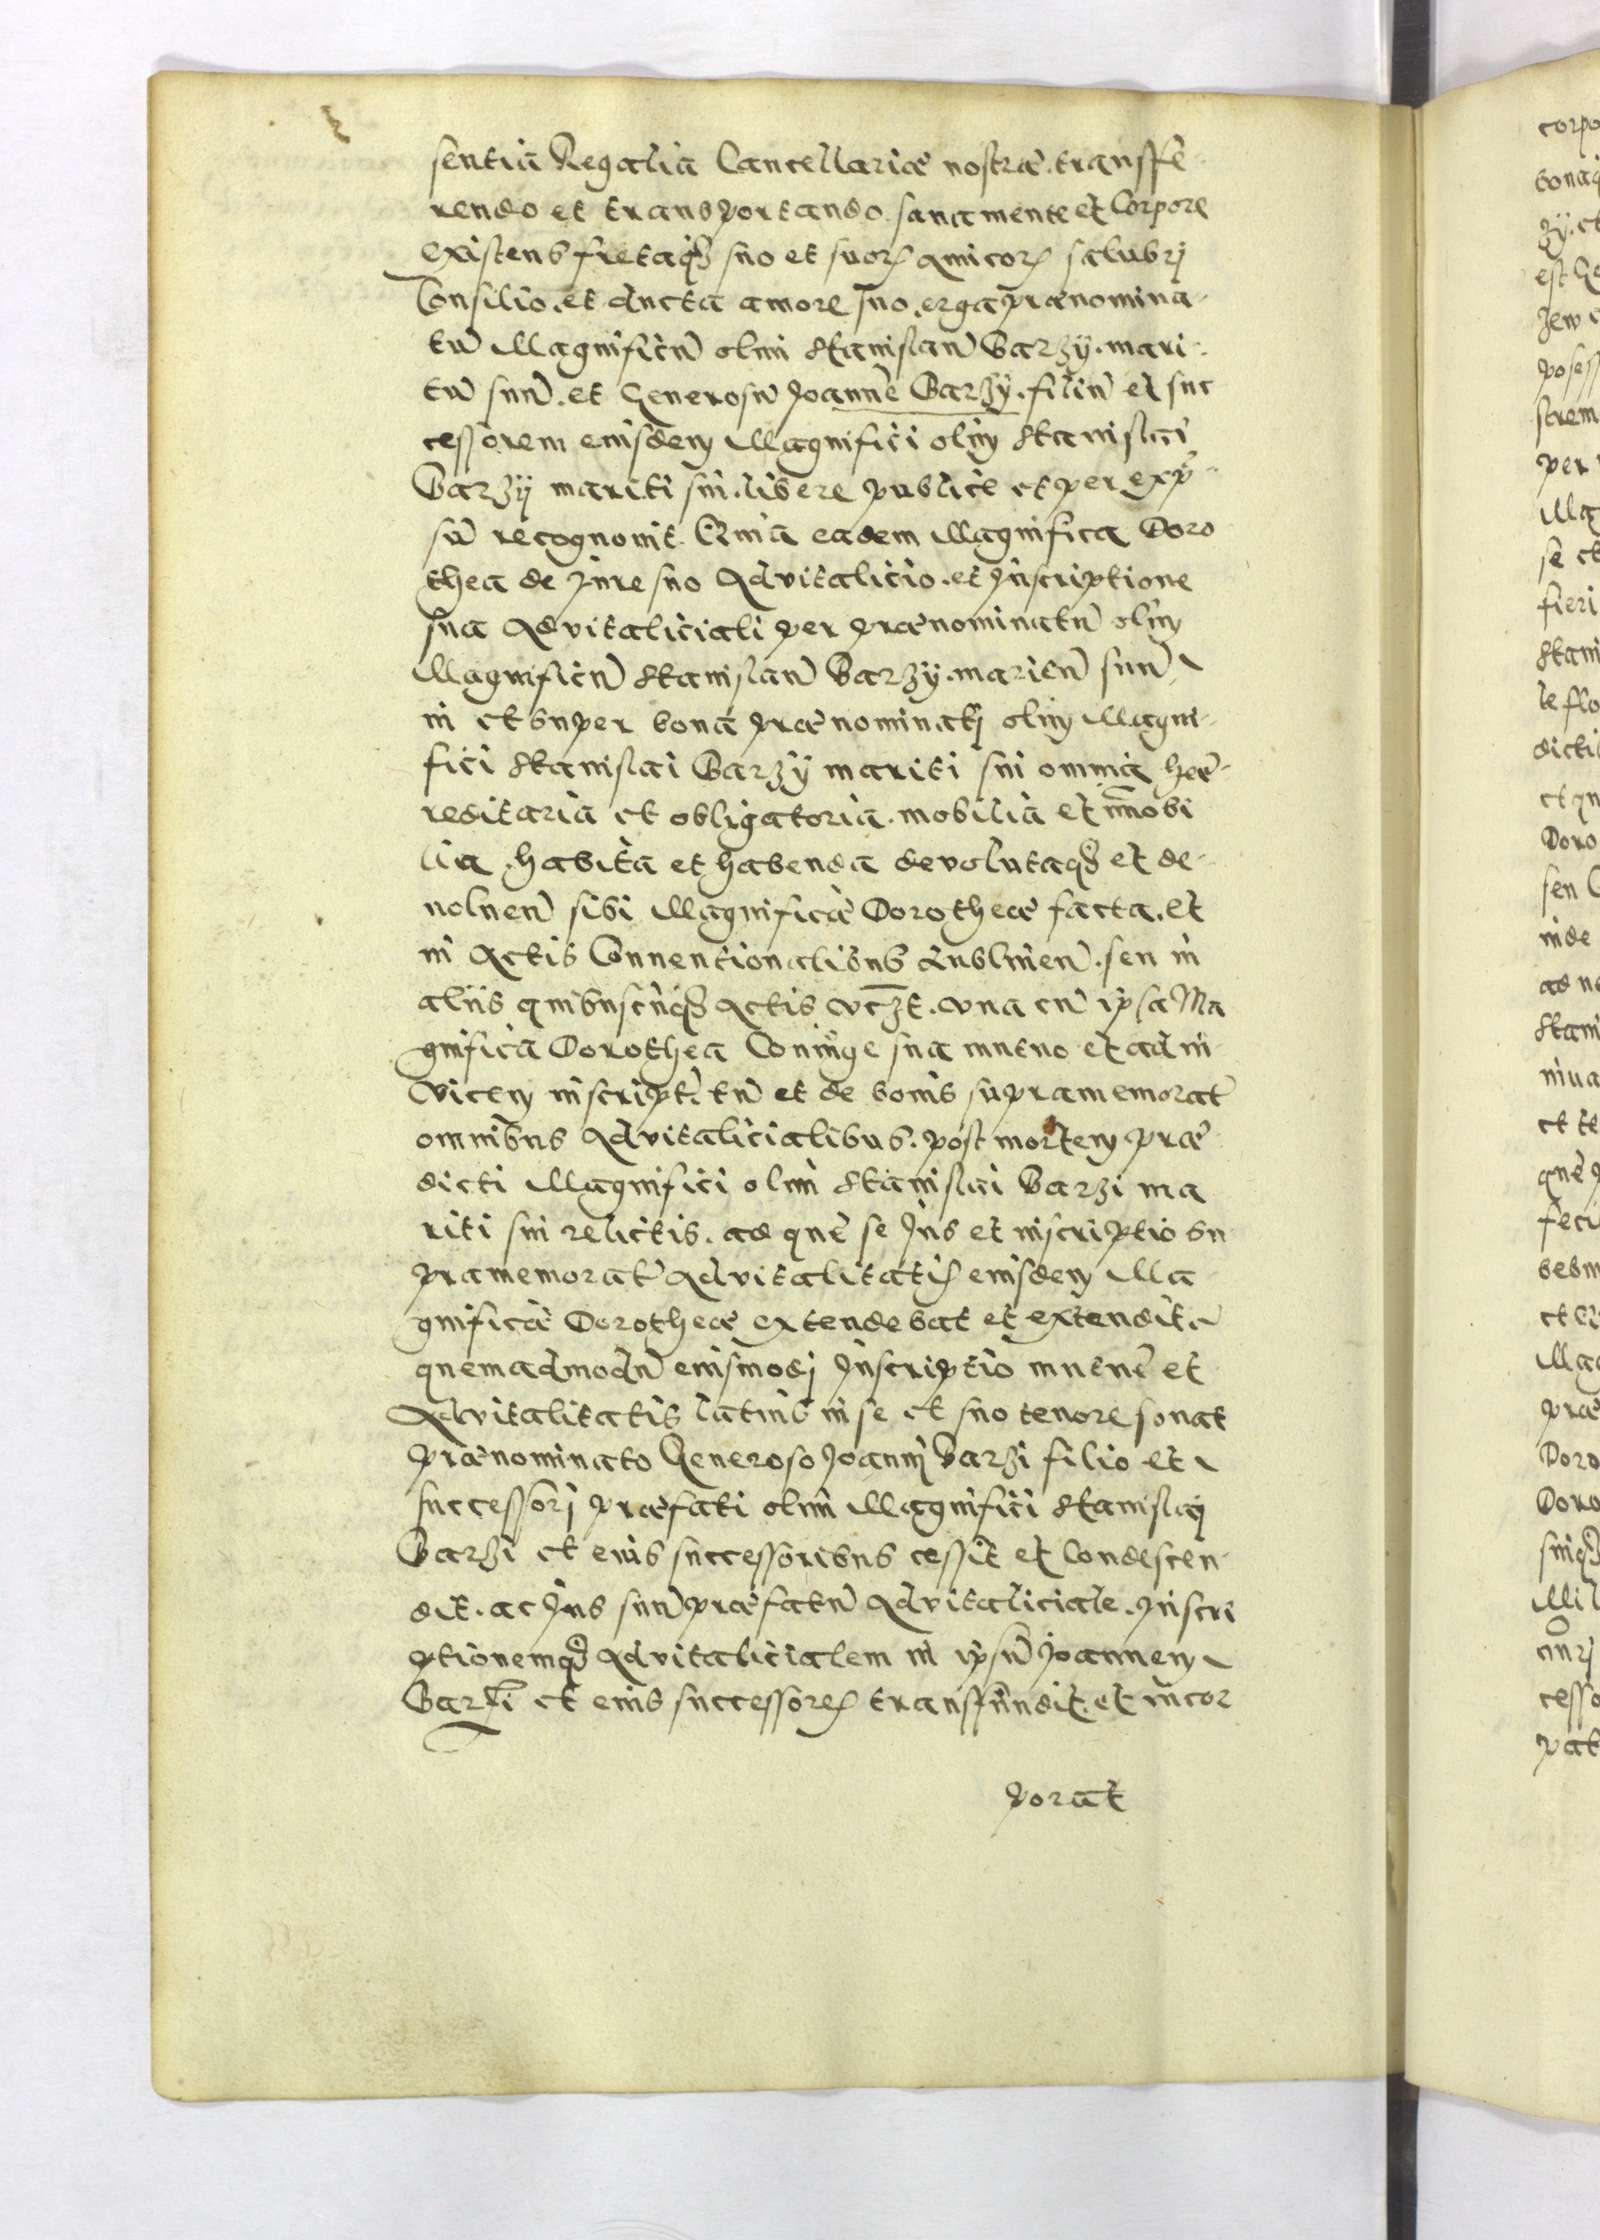 sentia Regalia Cancellariæ nostræ. transffe-
rendo et transportando. sana mente et Corpore
existens fretaq3 suo et suorꝝ amicorꝝ salubrj
Consilio. et ducta amore suo. erga prænomina-
tū Magnificū olim Stanislaū Barzÿ. mari-
tū suū. et Generosū Joannē Barzÿ. filiū et suc
cessorem eiusdem Magnifici olim Stanislai
Barzÿ mariti sui. libere publice et per exp̄-
sū recognouit. Quia eadem Magnifica Doro
thea de Jure suo Aduitalicio. et Inscriptione
sua Aduitaliciali per prænominatū olim
Magnificū Stanislaū Barzÿ. maritū suū
in et super bona prænominatj olim Magni-
fici Stanislai Barzÿ mariti sui omnia hæ-
reditaria et obligatoria. mobilia et im̄obi
lia. habita et habenda deuolutaq3 et de-
uoluen̄ sibi Magnificæ Dorotheæ facta. et
in Actis Conuentionalibus Lublinen̄. seu in
aliis quibuscūq3 Actis vcz̄t. vna cū ipsa Ma
gnifica Dorothea Coniuge sua mutuo et ad in
vicem inscript. tū et de bonis supramemorat̄
omnibus Aduitalicialibus. post mortem præ
dicti Magnifici olim Stanislai Barzi ma
riti sui relictis. ad quē se Jus et inscriptio su
pramemorat̄ Aduitalitatꝭ eiusdem Ma
gnificæ Dorotheæ extendebat et extendit
quemadmodū eiusmodj Inscriptio mutuē et
Aduitalitatis latius in se et suo tenore sonat
Prænominato Generoso Joannj Barzi filio et
successorj præfati olim Magnifici Stanislaj
Barzi et eius successoribus cessit et Condescen-
dit. ac Jus suū præfatū Aduitaliciale. Inscri
ptionemq3 Aduitalicialem in ipsū Joannem
Barzi et eius successores transffundit. et incor
porat